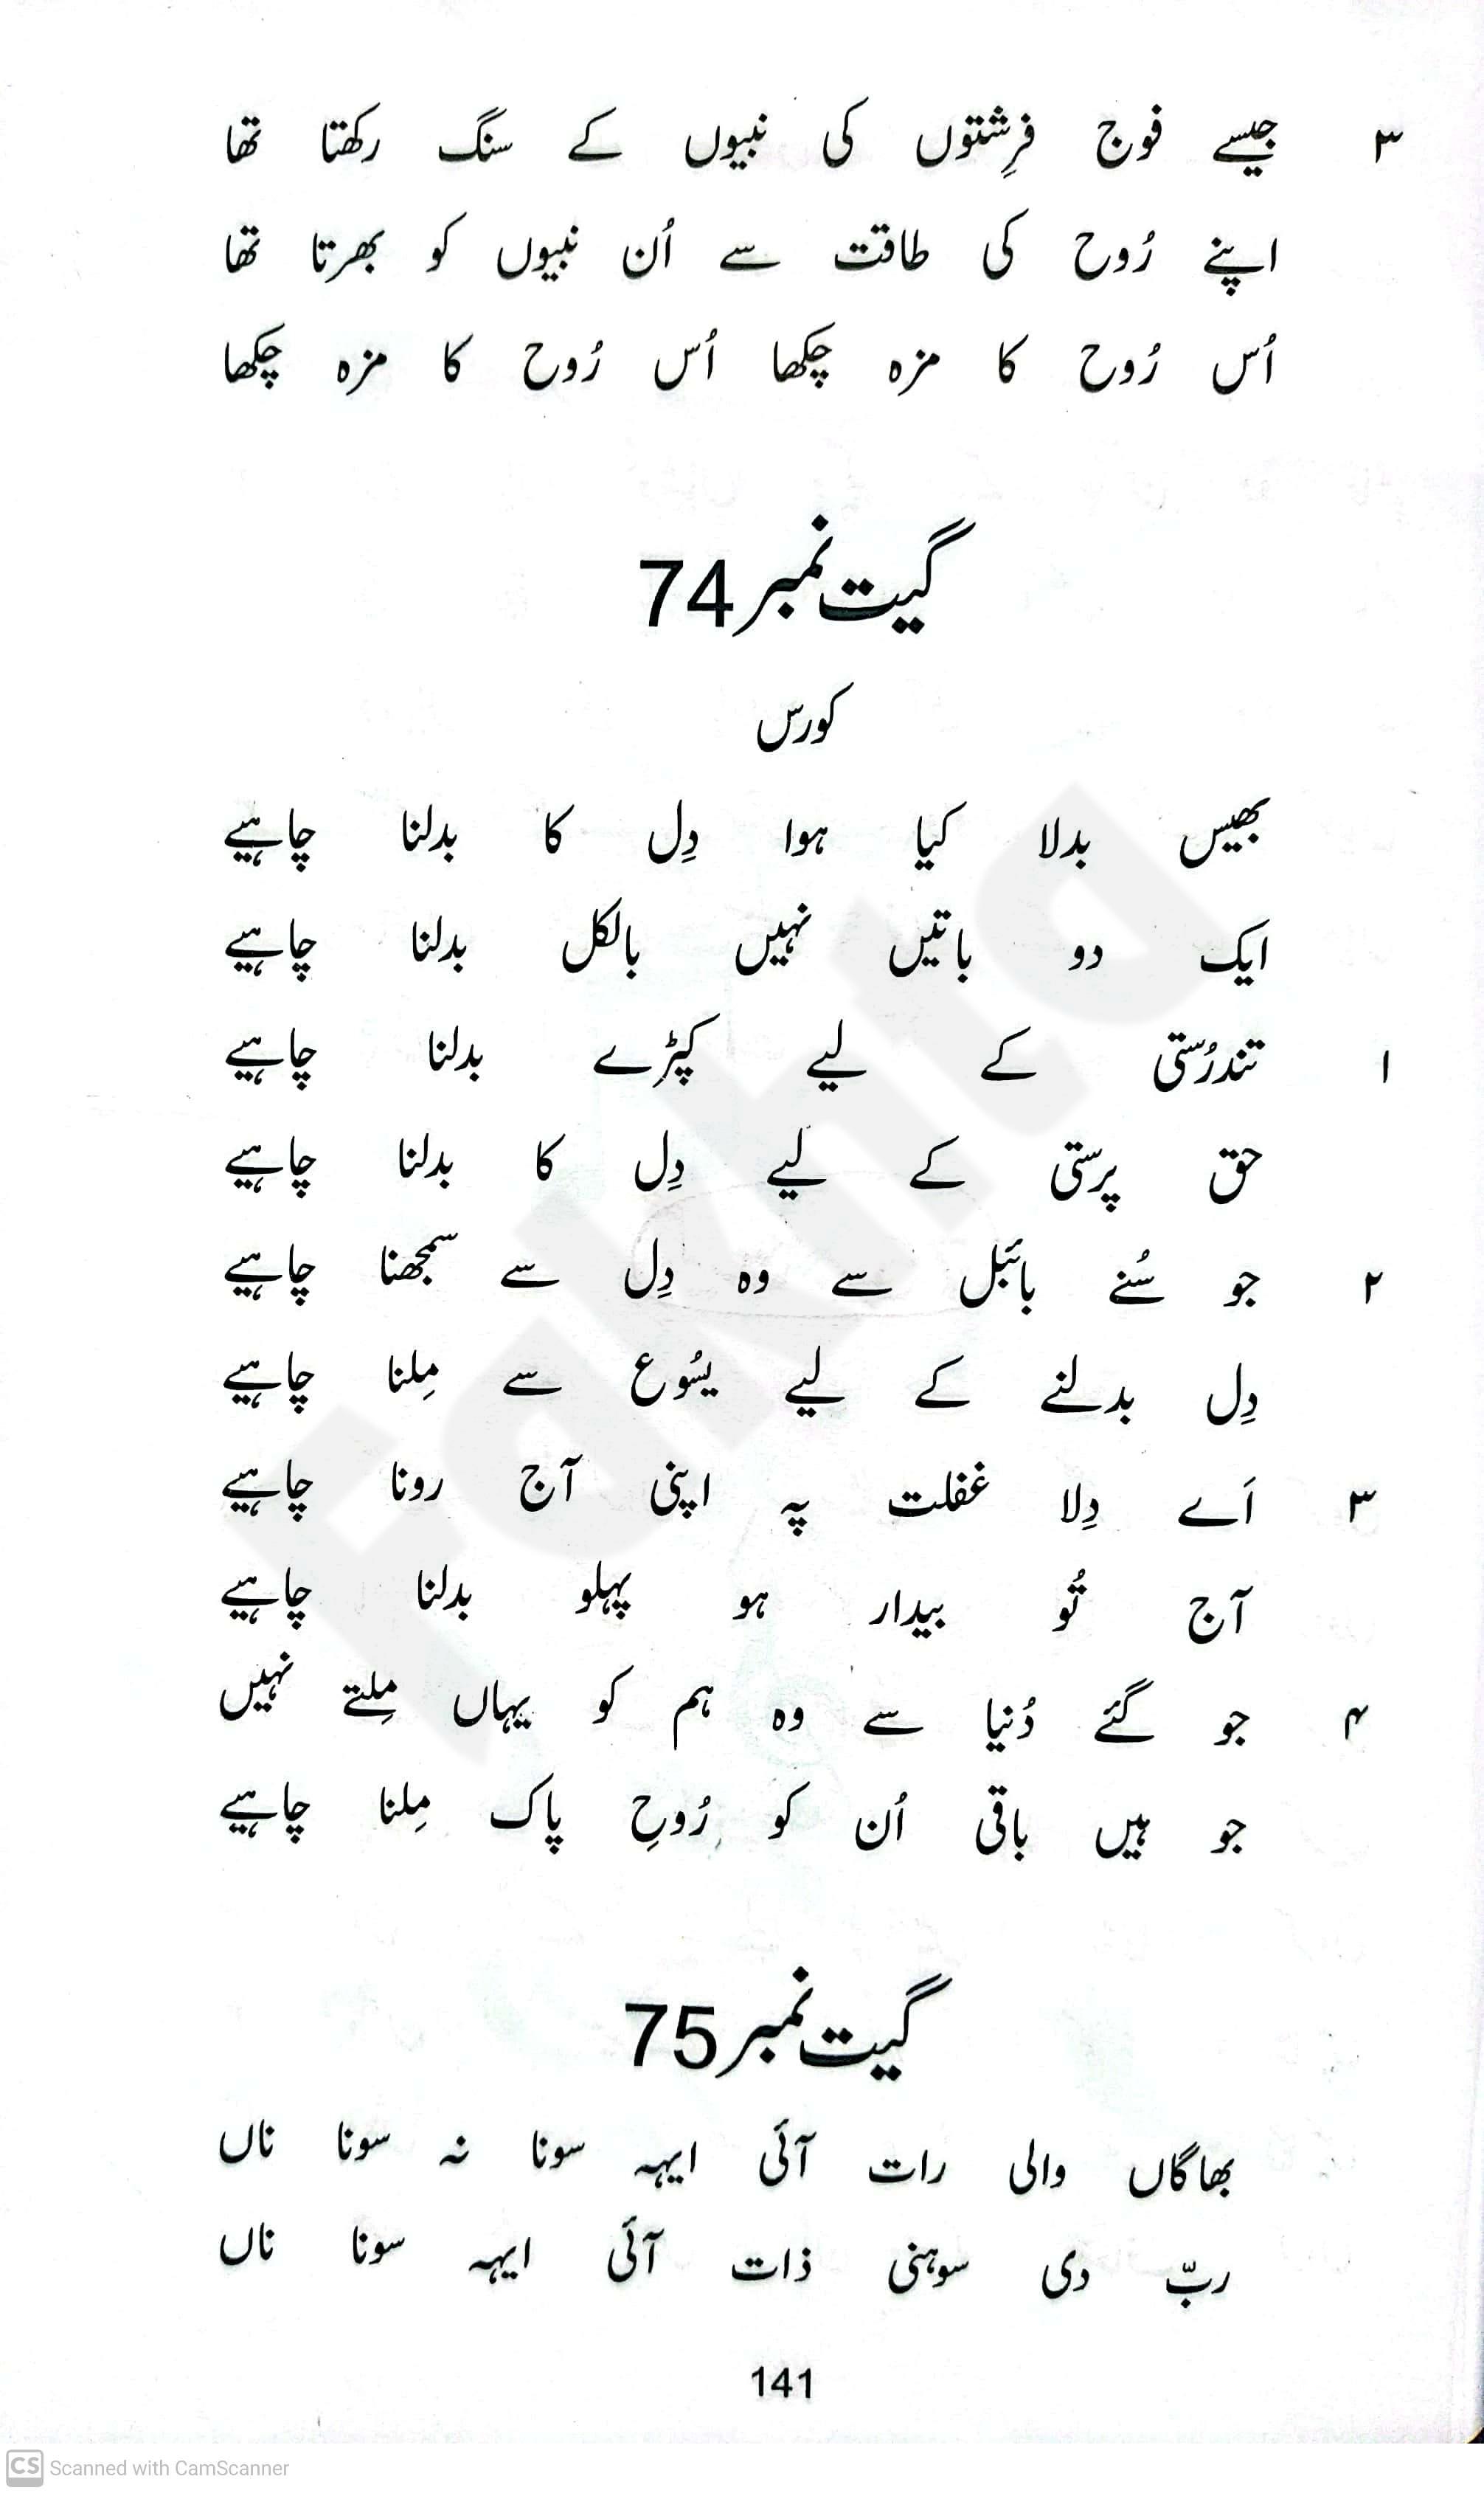 ۳ جیسے فوج فرِشتوں کی نبیوں کے سنگ رکھتا تھا
اپنے رُوح کی طاقت سے اُن نبیوں کو بھرتا تھا
اُس رُوح کا مزہ چکھا اُس رُوح کا مزہ چکھا
گیت نمبر 74
کورس
بھیس بدلا کیا ہوا دِل کا بدلنا چاہیے
ایک دو باتیں نہیں بالکل بدلنا چاہیے
۱ تندرُستی کے لیے کپڑے بدلنا چاہیے
حق پرستی کے لیے دِل کا بدلنا چاہیے
۲ جو سُنے بائبل سے وہ دِل سے سمجھنا چاہیے
دِل بدلنے کے لیے یسُوع سے مِلنا چاہیے
۳ اَے دِلا غفلت پہ اپنی آج رونا چاہیے
آج تُو بیدار ہو پہلو بدلنا چاہیے
۴ جو گئے دُنیا سے وہ ہم کو یہاں مِلتے نہیں
جو ہیں باقی اُن کو رُوحِ پاک مِلنا چاہیے
گیت نمبر 75
بھاگاں والی رات آئی ایہہ سونا نہ سونا ناں
ربّ دی سوہنی ذات آئی ایہہ سونا ناں
141
Fakhta
CS Scanned with CamScanner